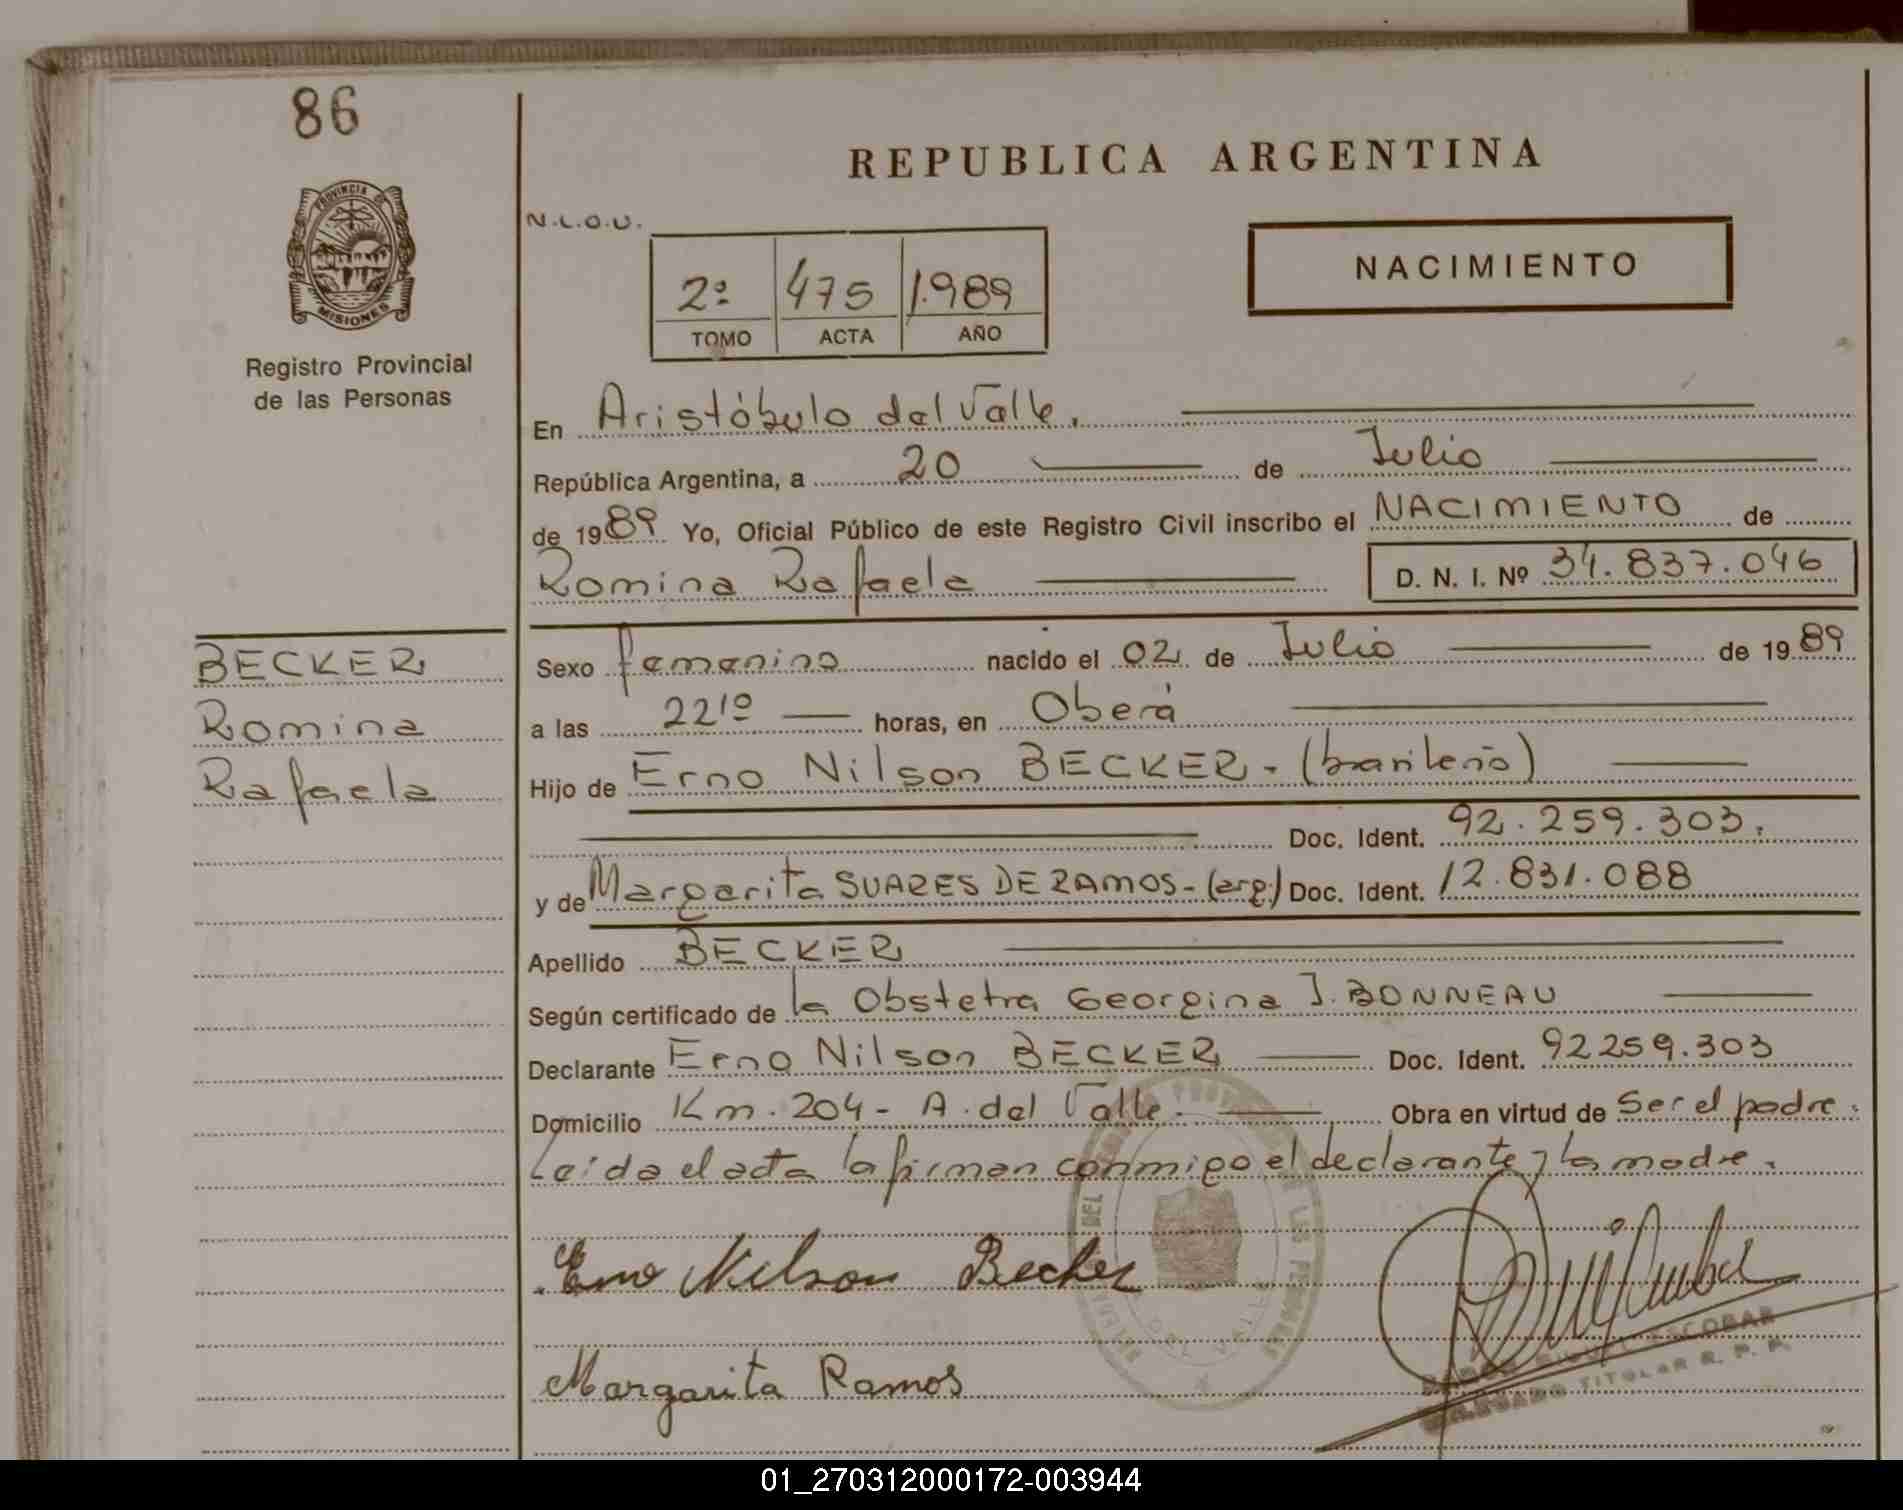 86
PROVINCIA DE
MISIONES
Registro Provincial
de las Personas
REPUBLICA ARGENTINA
N.L.O.U.
2º 475 1.989
TOMO ACTA AÑO
NACIMIENTO
En Aristóbulo del Valle.
República Argentina, a 20 de Julio
de 1989 Yo, Oficial Público de este Registro Civil inscribo el NACIMIENTO de
Romina Rafaela D. N. I. Nº 34.837.046
BECKER
Romina
Rafaela
Sexo femenino nacido el 02 de Julio de 1989
a las 22¹⁰ horas, en Oberá
Hijo de Erno Nilson BECKER - (brasileño)
Doc. Ident. 92.259.303.
y de Margarita SUARES DE RAMOS - (arg.) Doc. Ident. 12.831.088
Apellido BECKER
Según certificado de la Obstetra Georgina J. BONNEAU
Declarante Erno Nilson BECKER Doc. Ident. 92259.303
Domicilio Km. 204 - A. del Valle. Obra en virtud de Ser el padre.
Leída el acta la firman conmigo el declarante y la madre.
Erno Nilson Becker
Margarita Ramos
ESCOBAR
TITULAR R. P. P.
01_270312000172-003944